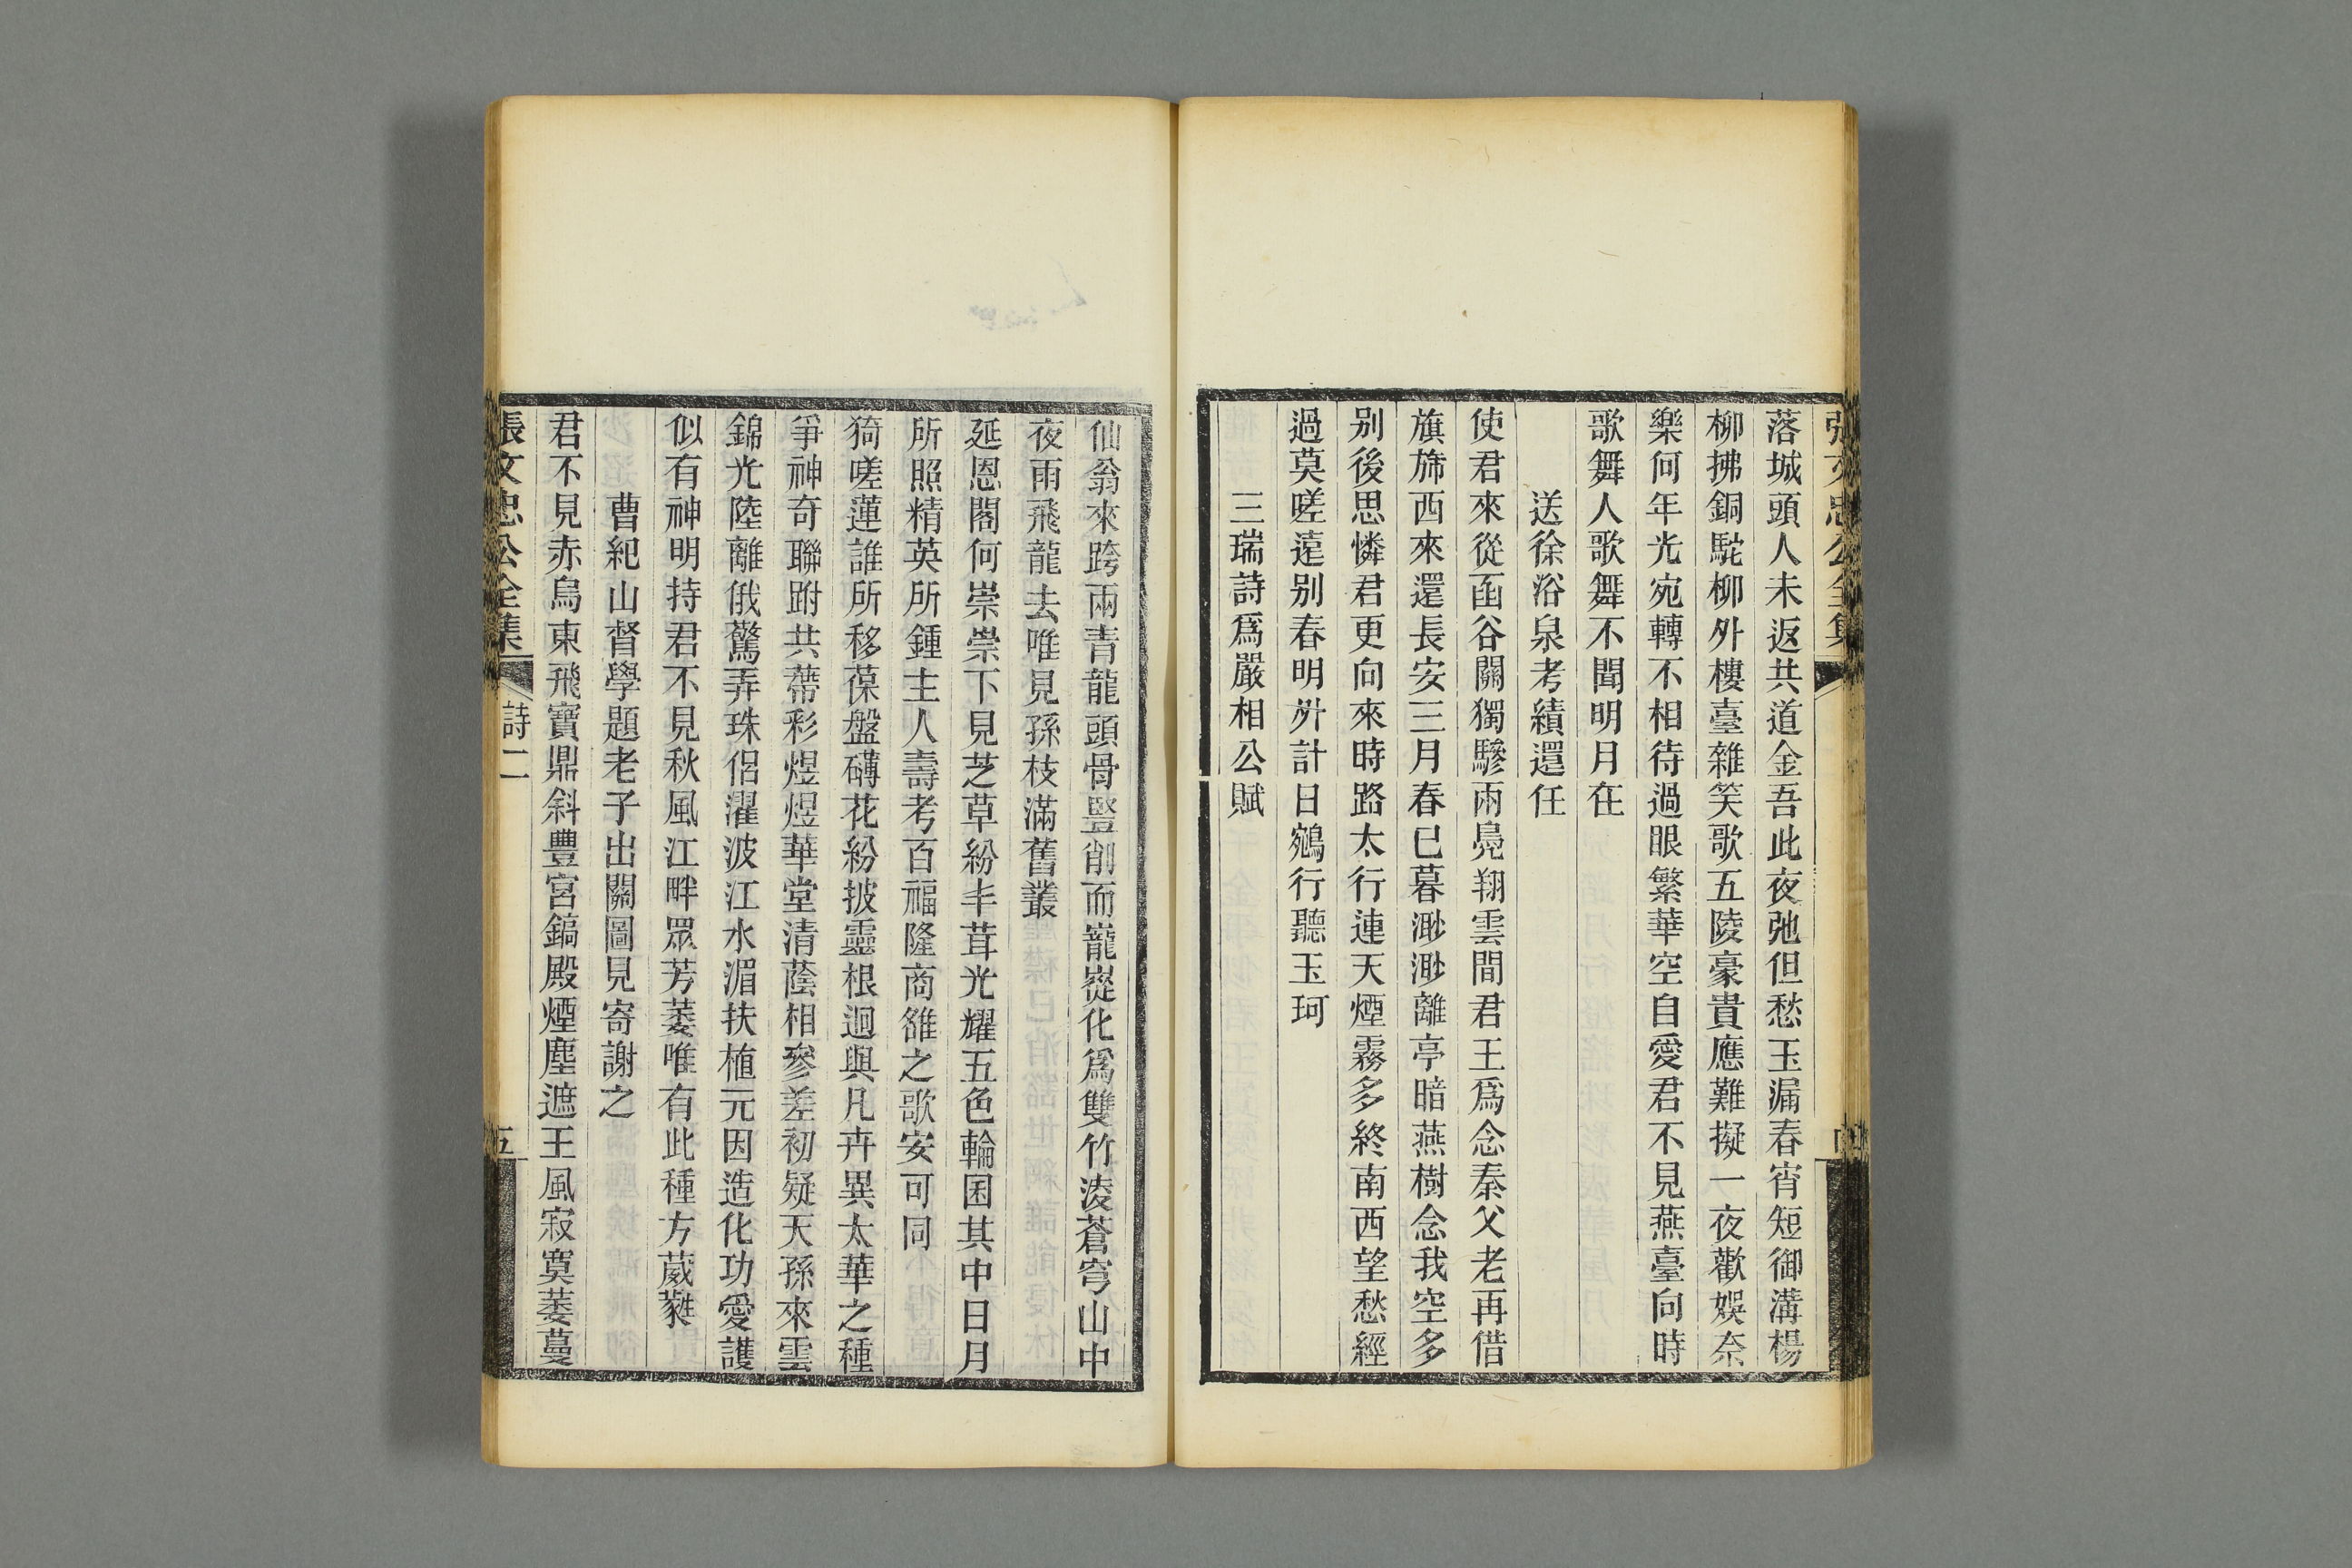 落城頭人未返共道金吾此夜弛但愁玉漏春宵短御溝楊
柳拂銅駝柳外樓臺雜笑歌五陵豪貴應難擬一夜歡娛奈
樂何年光宛轉不相待過眼繁華空自愛君不見燕臺向時
歌舞人歌舞不聞明月在
送徐浴泉考績還任
使君來從函谷關獨驂兩鳧翔雲間君王爲念秦父老再借
旗旆西來還長安三月春已暮渺渺離亭暗燕樹念我空多
別後思憐君更向來時路太行連天煙霧多終南西望愁經
過莫嗟遠別春明外計日鵷行聽玉珂
三瑞詩爲嚴相公賦
仙翁來跨兩青龍頭骨豎削而巃嵸化爲雙竹淩蒼穹山中
夜雨飛龍去唯見孫枝滿舊叢
延恩閣何崇崇下見芝草紛丰茸光耀五色輪囷其中日月
所照精英所鍾主人壽考百福隆商雒之歌安可同
猗嗟蓮誰所移葆盤礴花紛披靈根迥與凡卉異太華之種
爭神奇聯跗共蔕彩煜煜華堂清蔭相參差初疑天孫來雲
錦光陸離俄驚弄珠侶濯波江水湄扶植元因造化功愛護
似有神明持君不見秋風江畔眾芳萎唯有此種方葳蕤
曹紀山督學題老子出關圖見寄謝之
君不見赤烏東飛寶鼎斜豐宮鎬殿煙塵遮王風寂寞萎蔓
張文忠公全集
詩二
五